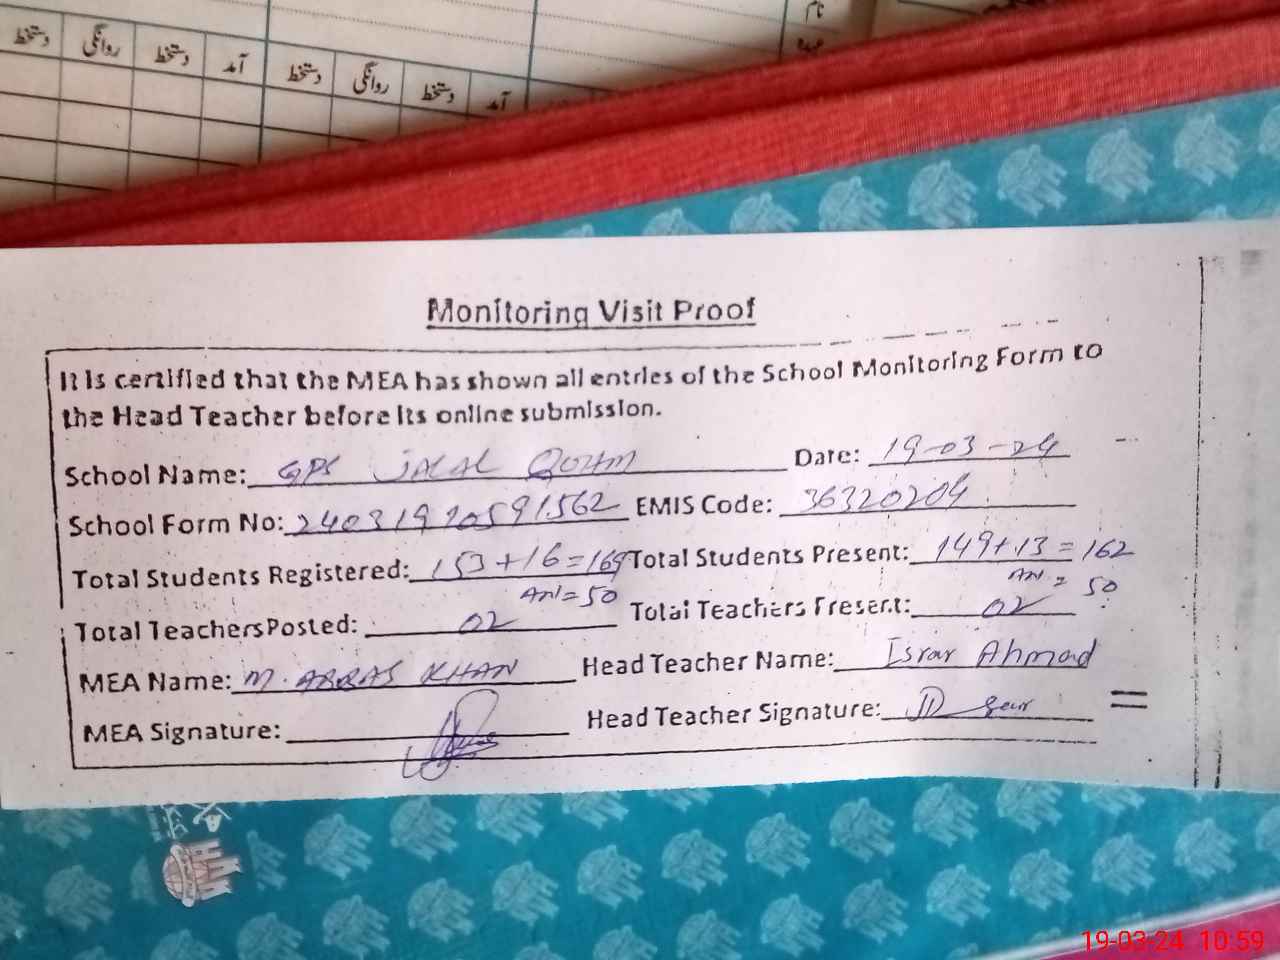 نام
عہدہ
دستخط روانگی دستخط آمد دستخط روانگی دستخط آمد
Monitoring Visit Proof
It is certified that the MEA has shown all entries of the School Monitoring Form to
the Head Teacher before its online submission.
School Name: GPS JALAL QOHM Date: 19-03-24
School Form No: EMIS Code: 36320204
Total Students Registered: 153+16=169 Total Students Present: 149+13=162
=50 = 50
Total Teachers Posted: 02 Total Teachers Present: 02
MEA Name: M. ABBAS KHAN Head Teacher Name: Israr Ahmad
MEA Signature: Head Teacher Signature:
19-03-24 10:59